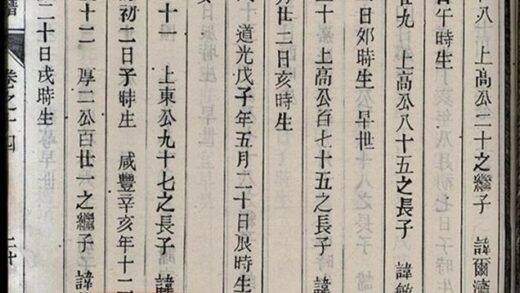 十八 上高公二十之繼子 諱爾濟
日午時生
十九 上高公八十五之長子 諱敏
二日卯時生 早世
二十 上高公百七十五之長子 諱
廿二日亥時生
道光戊子年五月二十日辰時生
十一 上東公九十七之長子 諱
初二日子時生 咸豐辛亥年十二
十二 厚二公百廿一之繼子 諱
二十日戌時生
譜 卷之十四 二十